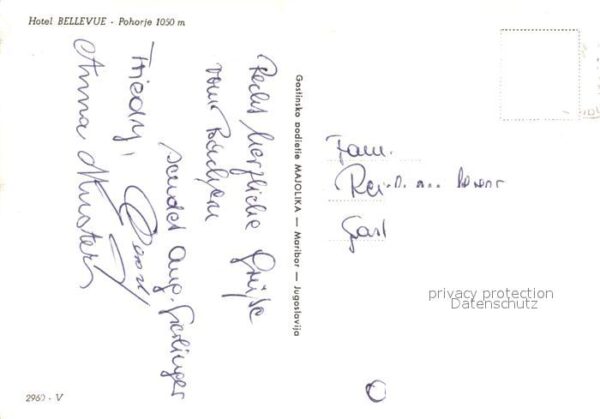 Hotel BELLEVUE - Pohorje 1050 m
Recht herzliche Grüße
vom Bachern
sendet Aug.
Friedy,
Anna Muster
Gostinsko podjetje MAJOLIKA — Maribor — Jugoslavija
Fam.
Gast
privacy protection
Datenschutz
2960 - V